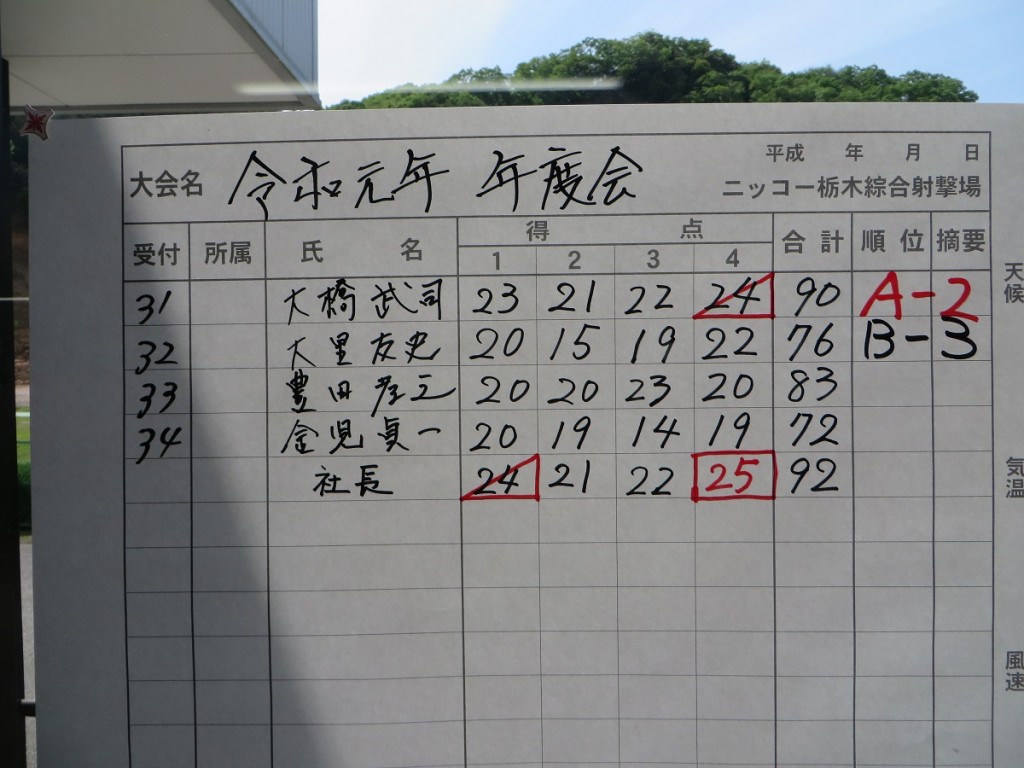 平成 年 月 日
大会名 令和元年 年度会 ニッコー栃木綜合射撃場
受付 所属 氏名 得点 合計 順位 摘要
1 2 3 4
31 大橋武司 23 21 22 24 90 A-2
32 大里友史 20 15 19 22 76 B-3
33 豊田孝之 20 20 23 20 83
34 金児貞一 20 19 14 19 72
社長 24 21 22 25 92
天候
気温
風速